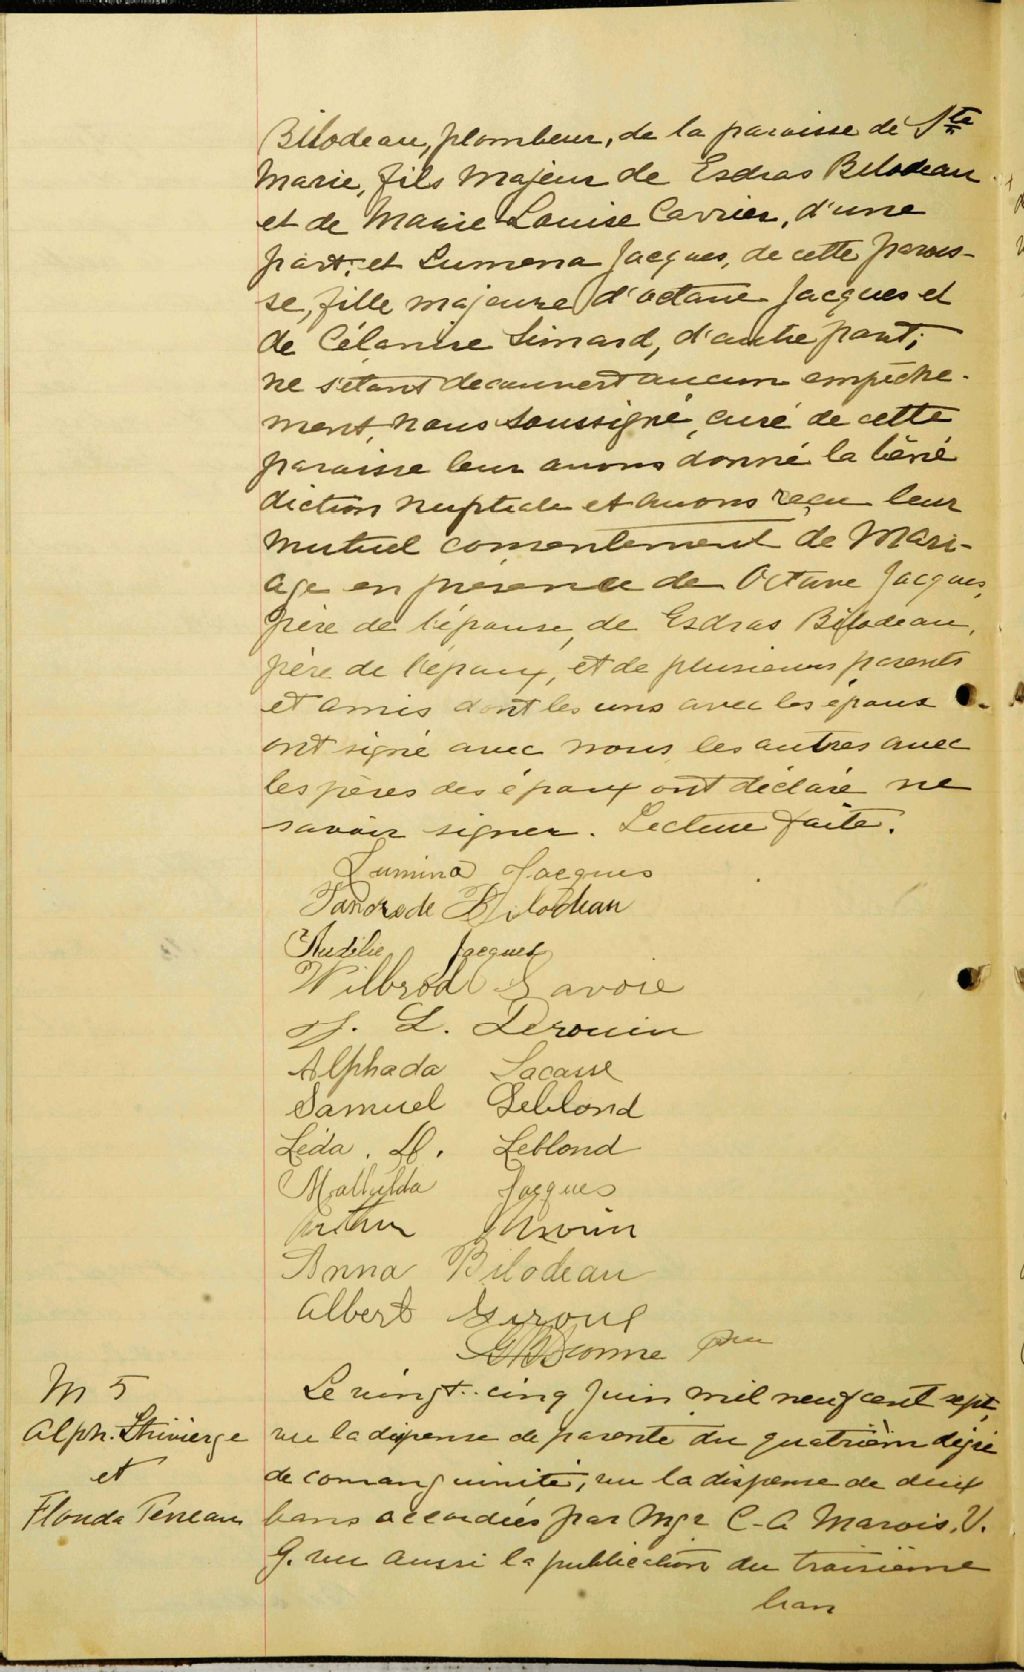 Bilodeau, plombeur, de la paroisse de Ste
Marie, fils majeur de Esdras Bilodeau
et de Marie Louise Carrier, d'une
part; et Lumena Jacques, de cette parois-
se, fille majeure d'octave Jacques et
de Célanire Simard, d'autre part;
ne s'étant decouvert aucun empêche-
ment, nous soussigné, curé de cette
paroisse leur avons donné la béné
diction nuptiale et avons reçu leur
mutuel consentement de Mari-
age en présence de Octave Jacques,
père de l'épouse, de Esdras Bilodeau,
père de l'époux, et de plusieurs parents
et amis dont les uns avec les époux
ont signé avec nous les autres avec
les pères des époux ont déclaré ne
savoir signer. Lecture faite.
Lumina Jacques
Tancrede Bilodeau
Jacques
Wilbrod Savoie
J. L. Derouin
Alphada Lacasse
Samuel Leblond
Léda. D. Leblond
Mathilda Jacques
Arthur
Anna Bilodeau
Albert Giroux
Dionne ptre
M 5
Alph. Thivierge
et
Florida Ferland
Le vingt-cinq Juin mil neuf cent sept,
vu la dispense de parenté du quatrièm degré
de consanguinité, vu la dispense de deux
bans accordées par Mgr C-A Marois, V.
G. vu aussi la publication du troisième
ban